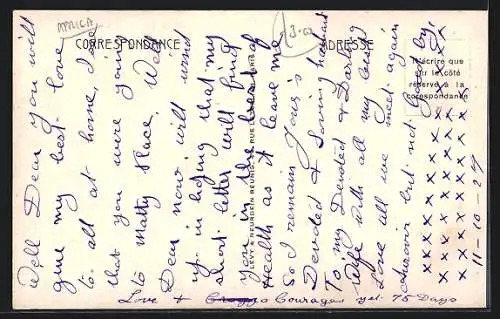 AFRICA
CORRESPONDANCE
ADRESSE
N'écrire que
sur le côté
réservé à la
correspondance
Well Dear you will
give my best love
to all at home, I see
that you were going
to Matty Place, Well
Dear now will wind
up in hoping that my
short letter will find
you in the best of
Health as it leave me
So I remain Yours
Devoted & Loving husband
To my Devoted & Darling
Wife with all my
Love all we meet again
but not Good bye
x x x x x x x x x x
x x x x x x x x x x
x x x x x x x x x x
11-10-27
Love + Courage yet 75 Days
LEVY & NEURDEIN REUNIS